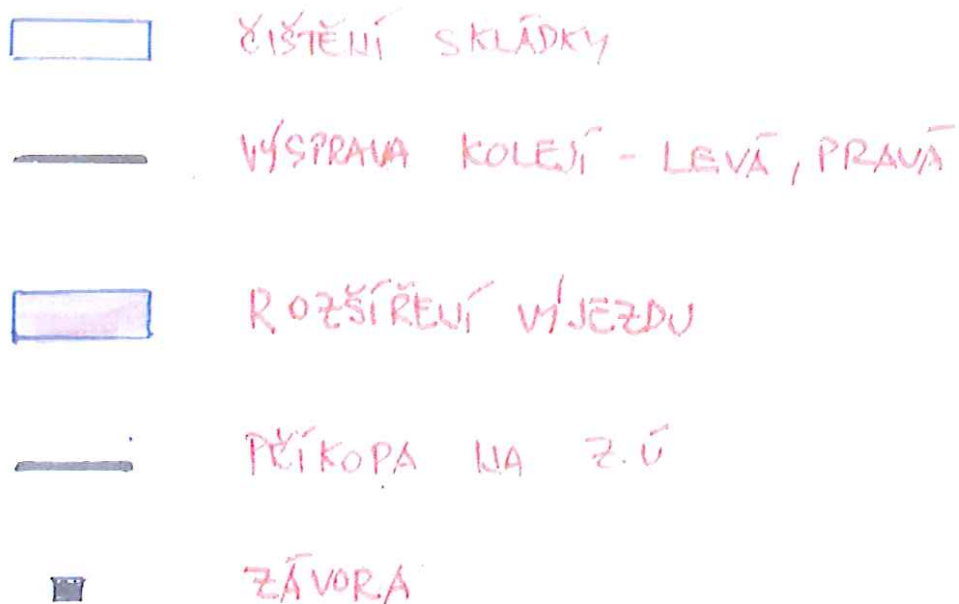 ČIŠTĚNÍ SKLÁDKY
VÝSPRAVA KOLEJÍ - LEVÁ, PRAVÁ
ROZŠÍŘENÍ VÝJEZDU
PŘÍKOPA NA Z.Ú
ZÁVORA